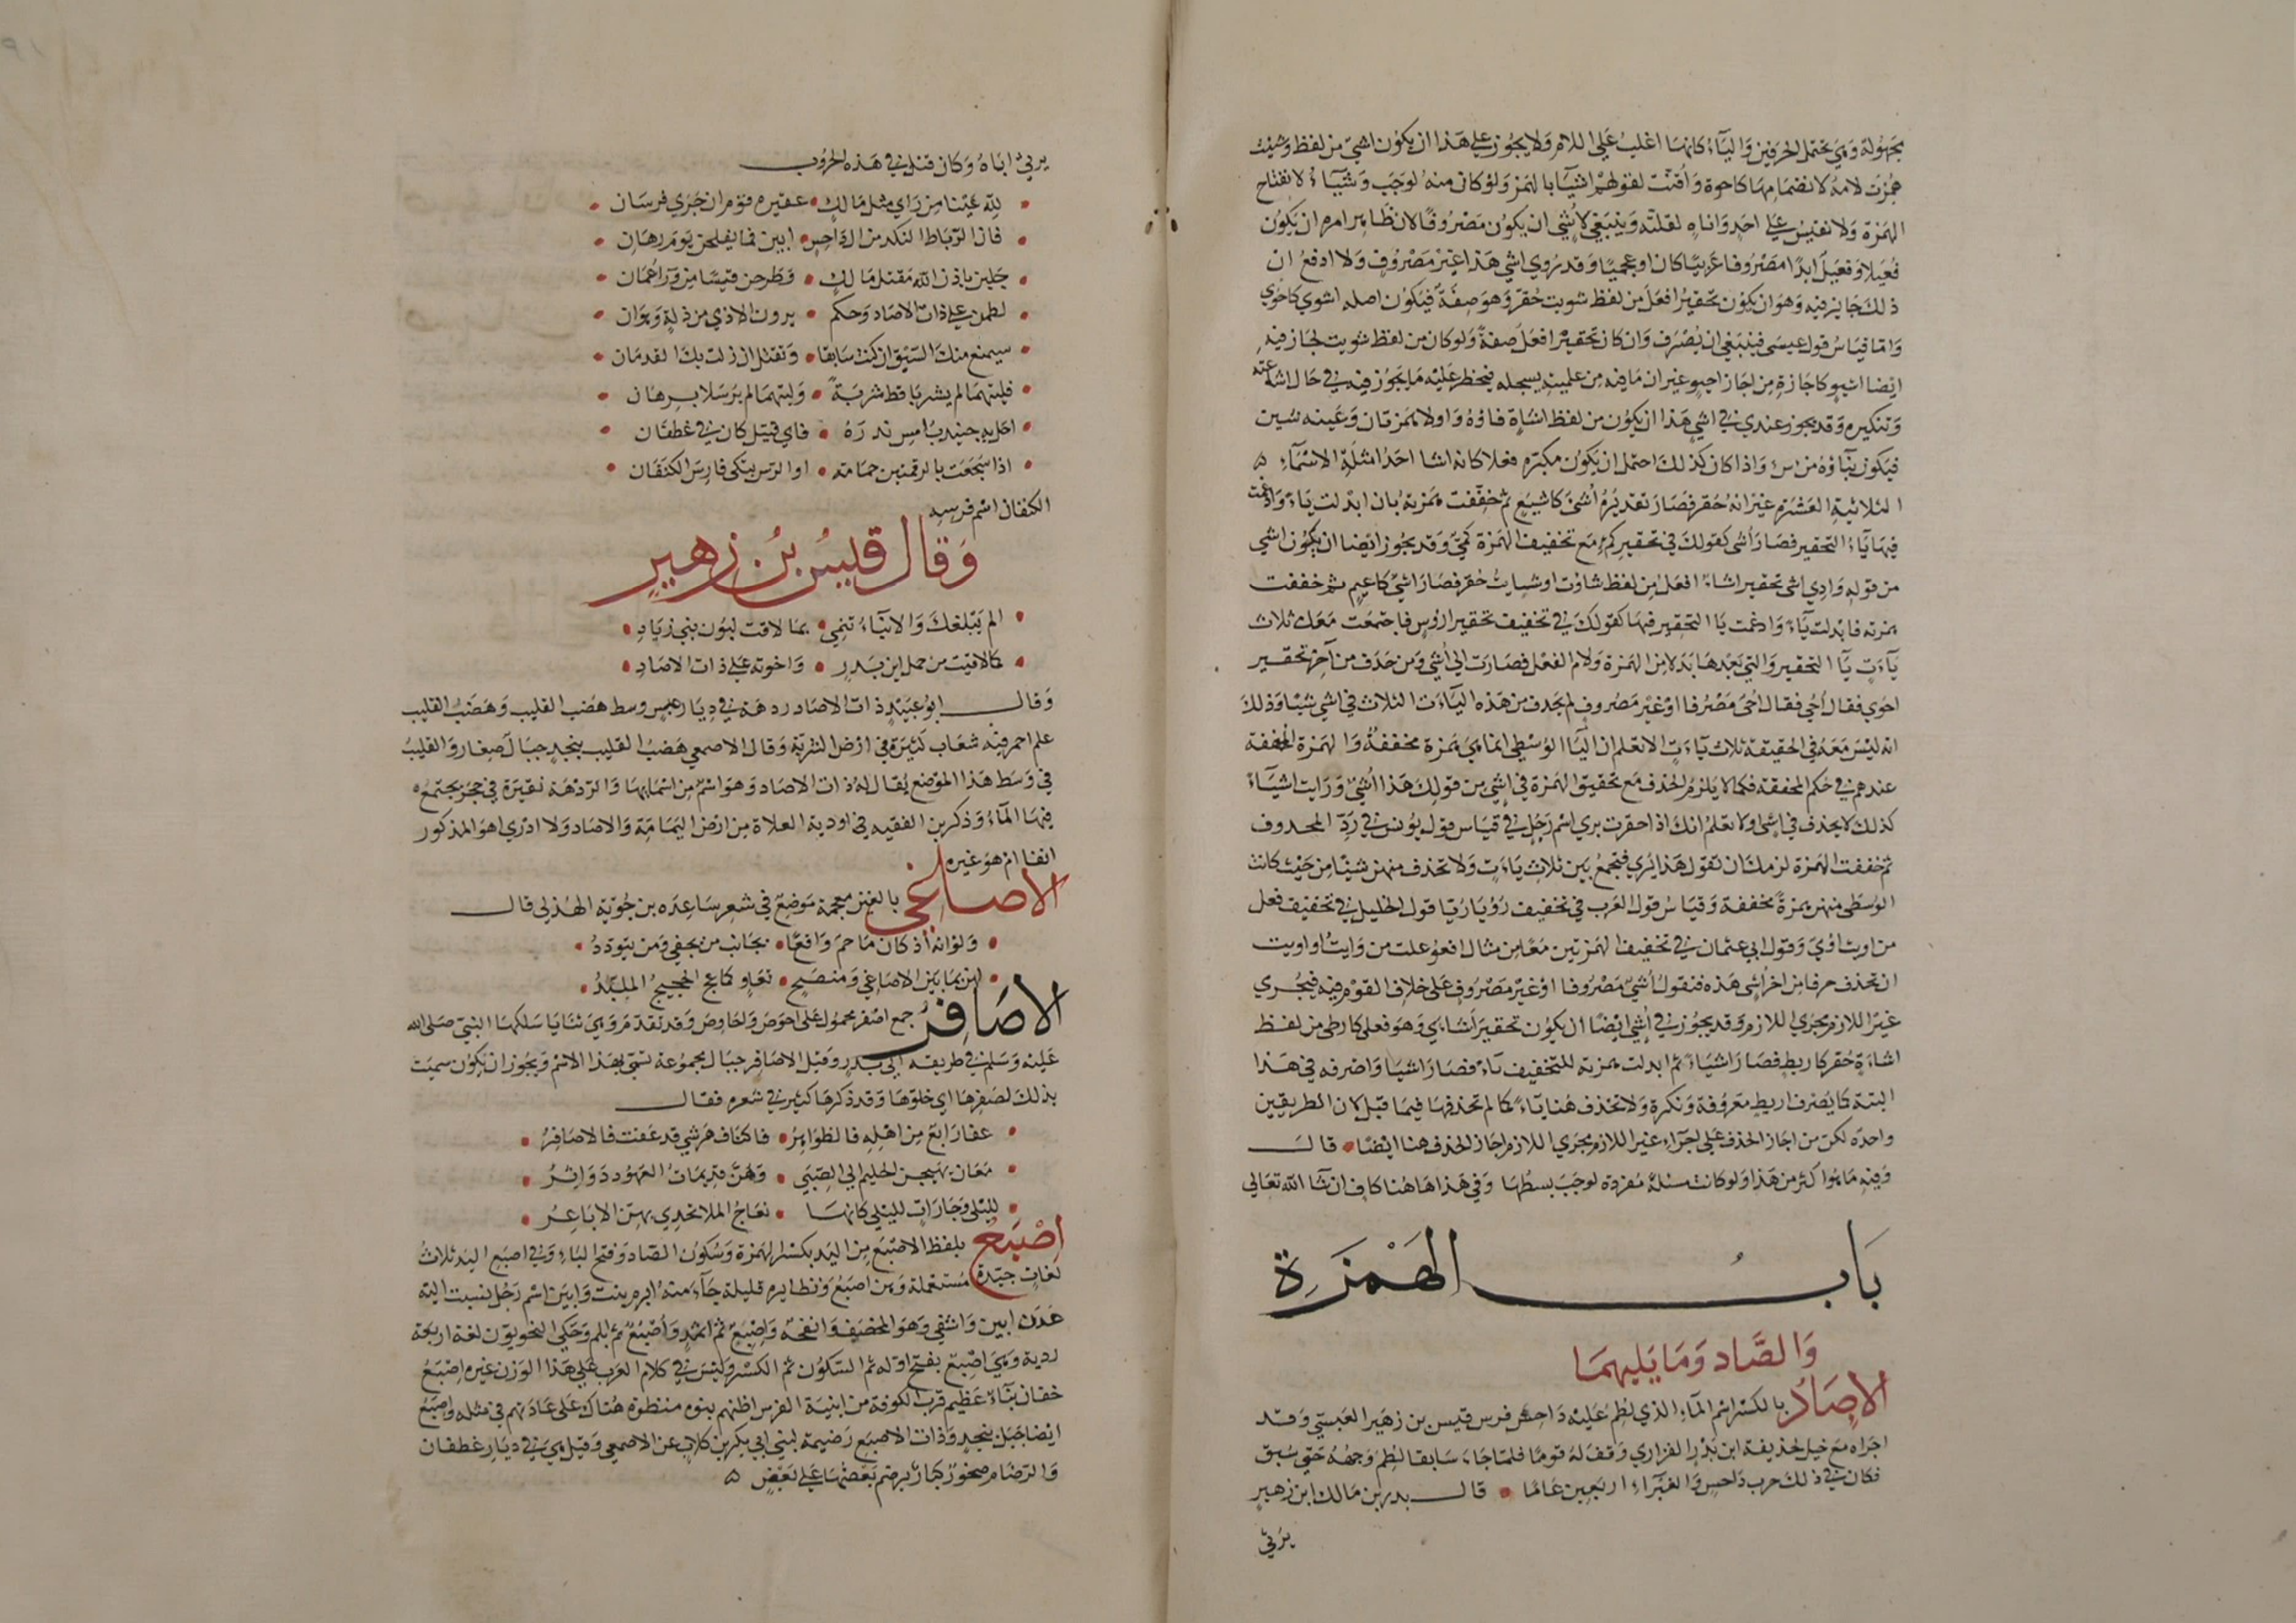 مجهولة وهي تحتمل الحرفين والياء كانها اغلب على اللام ولا يجوز على هذا ان يكون اشي من لفظ وشيت
همزت لامه لانضمامها كاجوة واقتت لقولهم اشياء بالهمز ولو كان منه لوجب وشياء لانفتاح
الهمزة ولا نقيس على احد واناه لقلته وينبغي لاشي ان يكون مصروفا لان ظاهر امره ان يكون
فعيلا وفعيل ابدا مصروفا عربيا كان او عجميا وقد روي اشي هذا غير مصروف ولا ادفع ان
ذلك جايز فيه وهو ان يكون تحقير افعل من لفظ شويت حقر وهو صفة فيكون اصله اشوي كاحوي
واما قياس قول عيسى فينبغي ان يصرف وان كان تحقير افعل صفة ولو كان من لفظ شويت لجاز فيه
ايضا اشيو كما جاز من اجاز احيو غير ان ما فيه من علميته يسجله فيحظر عليه ما يجوز فيه في حال اشاعته
وتنكيره وقد يجوز عندي في اشي هذا ان يكون من لفظ اشاة فاؤه ولامه همزتان وعينه شين
فيكون بناؤه من اش واذا كان كذلك احتمل ان يكون مكبره فعلا كانه اشا احد امثلة الاسماء
الثلاثية العشرة غير انه حقر فصار تقديره اشيئ كاشيع ثم خففت همزته بان ابدلت ياء وادغمت
فيها ياء التحقير فصار اشي كقولك في تحقير كمء مع تخفيف الهمزة كمي وقد يجوز ايضا ان يكون اشي
من قوله وادي اشي تحقير اشاء افعل من لفظ شاوت او شايت حقر فصار اشيئ كاعيم ثم خففت
همزته فابدلت ياء وادغمت ياء التحقير فيها كقولك في تخفيف تحقير ارؤس فاجتمعت معك ثلاث
ياءات ياء التحقير والتي بعدها بدلا من الهمزة ولام الفعل فصارت الى اشي ومن حذف من آخر تحقير
احوي فقال احي فقال احي مصرفا او غير مصروف لم يحذف من هذه الياءات الثلاث في اشي شيئا وذلك
انه ليس معه في الحقيقة ثلاث ياءات الا تعلم ان الياء الوسطى انما هي همزة مخففة والهمزة المخففة
عندهم في حكم المحققة فكما لا يلزم الحذف مع تحقيق الهمزة في اشي من قولك هذا اشيئ ورايت اشيياء
كذلك لا يحذف في اشي اولا تعلم انك اذا حقرت بري اسم رجل في قياس قول يونس في رد المحذوف
ثم خففت الهمزة لزمك ان تقول هذا يري فتجمع بين ثلاث ياءات ولا تحذف منهن شيئا من حيث كانت
الوسطى منهن همزة مخففة وقياس قول العرب في تخفيف رؤيا ريا قول الخليل في تخفيف فعل
من اويت اوي وقول ابي عثمان في تخفيف الهمزتين معا من مثال افعوعلت من وايت اواويت
ان تحذف حرفا من اخر اشي هذه فتقول اشي مصروفا او غير مصروف على خلاف القوم فيه فيجري
غير اللازم مجرى اللازم وقد يجوز في اشي ايضا ان يكون تحقير اشاي وهو فعلى كارطى من لفظ
اشاءة حقر كاريط فصار اشيئا ثم ابدلت همزته للتخفيف ياء فصار اشيا واصرفه في هذا
البتة كما يصرف اريط معروفة ونكرة ولا تحذف هنا ياء كما لم تحذفها فيما قبل لان الطريقين
واحده لكن من اجاز الحذف على اجراء غير اللازم مجرى اللازم اجاز الحذف هنا ايضا قال
وفيه ما هوا كثر من هذا ولو كانت مسئلة مفردة لوجب بسطها وفي هذا هاهنا كاف ان شآ الله تعالى
باب الهمزة
والصاد وما يليهما
الاصاد بالكسر اسم المآء الذي لطم عليه داحس فرس قيس بن زهير العبسي وقد
اجراه مع خيل لحذيفة ابن بدر الفزاري وقف له قوما فلما جاء سابقا لطم وجهه حتى سبق
فكان في ذلك حرب داحس والغبراء اربعين عاما قال بدر بن مالك ابن زهير
يرثي
يرثي اباه وكان قتل في هذه الحروب
لله عينا من راي مثل مالك عقيرة قوم ان جرى فرسان
فان الرباط النكد من ال داحس ابين فما يفلحن يوم رهان
جلبن باذن الله مقتل مالك وطرحن قيسا من ورا عمان
لطمن على ذات الاصاد وحكم يرون الاذي من ذلة وهوان
سيمنع منك السبق ان كنت سابقا وتقتل ان زلت بك القدمان
فليتهما لم يشربا قط شربة وليتهما لم يرسلا برهان
احل به جنيدب امس نذره فاي قتيل كان في غطفان
اذا سجعت بالرقمتين حمامة او الرس تبكى فارس الكتفان
الكتفان اسم فرسه
وقال قيس بن زهير
الم يبلغك والانباء تنمي بما لاقت لبون بني زياد
كما لاقيت من حمل ابن بدر واخوته على ذات الاصاد
وقال ابو عبيد ذات الاصاد ردهة في ديار عبس وسط هضب القليب وهضب القليب
علم احمر فيه شعاب كثيرة في ارض الشربة وقال الاصمعي هضب القليب بنجد جبال صغار والقليب
في وسط هذا الموضع يقال له ذات الاصاد وهو اسم من اسمايها والردهة نقيرة في حجر يجتمع
فيها المآء وذكر بن الفقيه في اودية العلاة من ارض اليمامة والاصاد ولا ادري اهو المذكور
انفا ام هو غيره
الاصاغي بالغين معجمة موضع في شعر ساعده بن جوية الهذلي قال
ولو انه اذ كان ما حم واقعا بجانب من يحفي ومن يتودد
لهن بما بين الاصاغي ومنصح تعاو كما عج الحجيج الملبد
الاصافر جمع اصفر محمول على احوص واحاوص وقد تقدم وهي ثنايا سلكها النبي صلى الله
عليه وسلم في طريقه الى بدر وقيل الاصافر جبال مجموعة تسمى بهذا الاسم ويجوز ان يكون سميت
بذلك لصفرها اي خلوها وقد ذكرها كثير في شعره فقال
عفا رابع من اهله فالظواهر فاكناف هرشي قد عفت فالاصافر
مغان يهيجن الحليم الى الصبى وهن قديمات العهود دواثر
لليلى وجارات لليلى كانها نعاج الملا تحدي بهن الاباعر
اصبع بلفظ الاصبع من اليد بكسر الهمزة وسكون الصاد وفتح الباء وفي اصبع اليد ثلاث
لغات جيدة مستعملة وهن اصبع ونظايره قليلة جاء منه ابرم بنت وابين اسم رجل نسبت اليه
عدن ابين واشفي وهو المخصف وانفحه واصبع ثم اثمد واصبع ثم ابلم وحكى النحويون لغة اربعة
ردية وهي اصبع بفتح اوله ثم السكون ثم الكسر وليس في كلام العرب على هذا الوزن غيره اصبع
خفان بناء عظيم قرب الكوفة من ابنية الفرس اظنهم بنوه منظرة هناك على عادتهم في مثله واصبع
ايضا جبل بنجد وذات الاصبع رضيمة لبني ابي بكر بن كلاب عن الاصمعي وقيل هي في ديار غطفان
والرضام صخور كبار يرضم بعضها على بعض